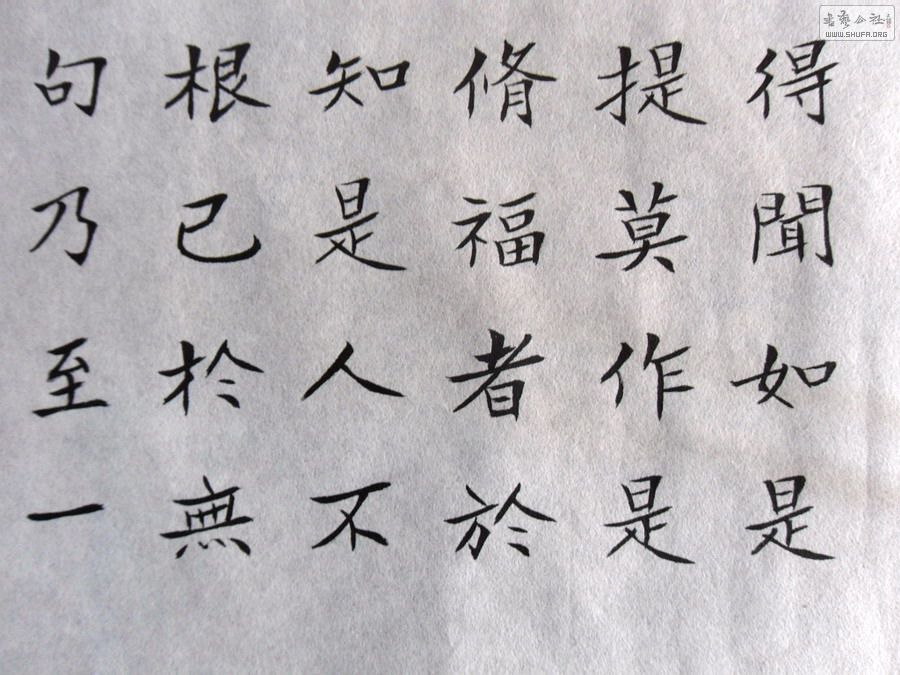 得聞如是
提莫作是
脩福者於
知是人不
根已於無
句乃至一
書藝公社
WWW.SHUFA.ORG